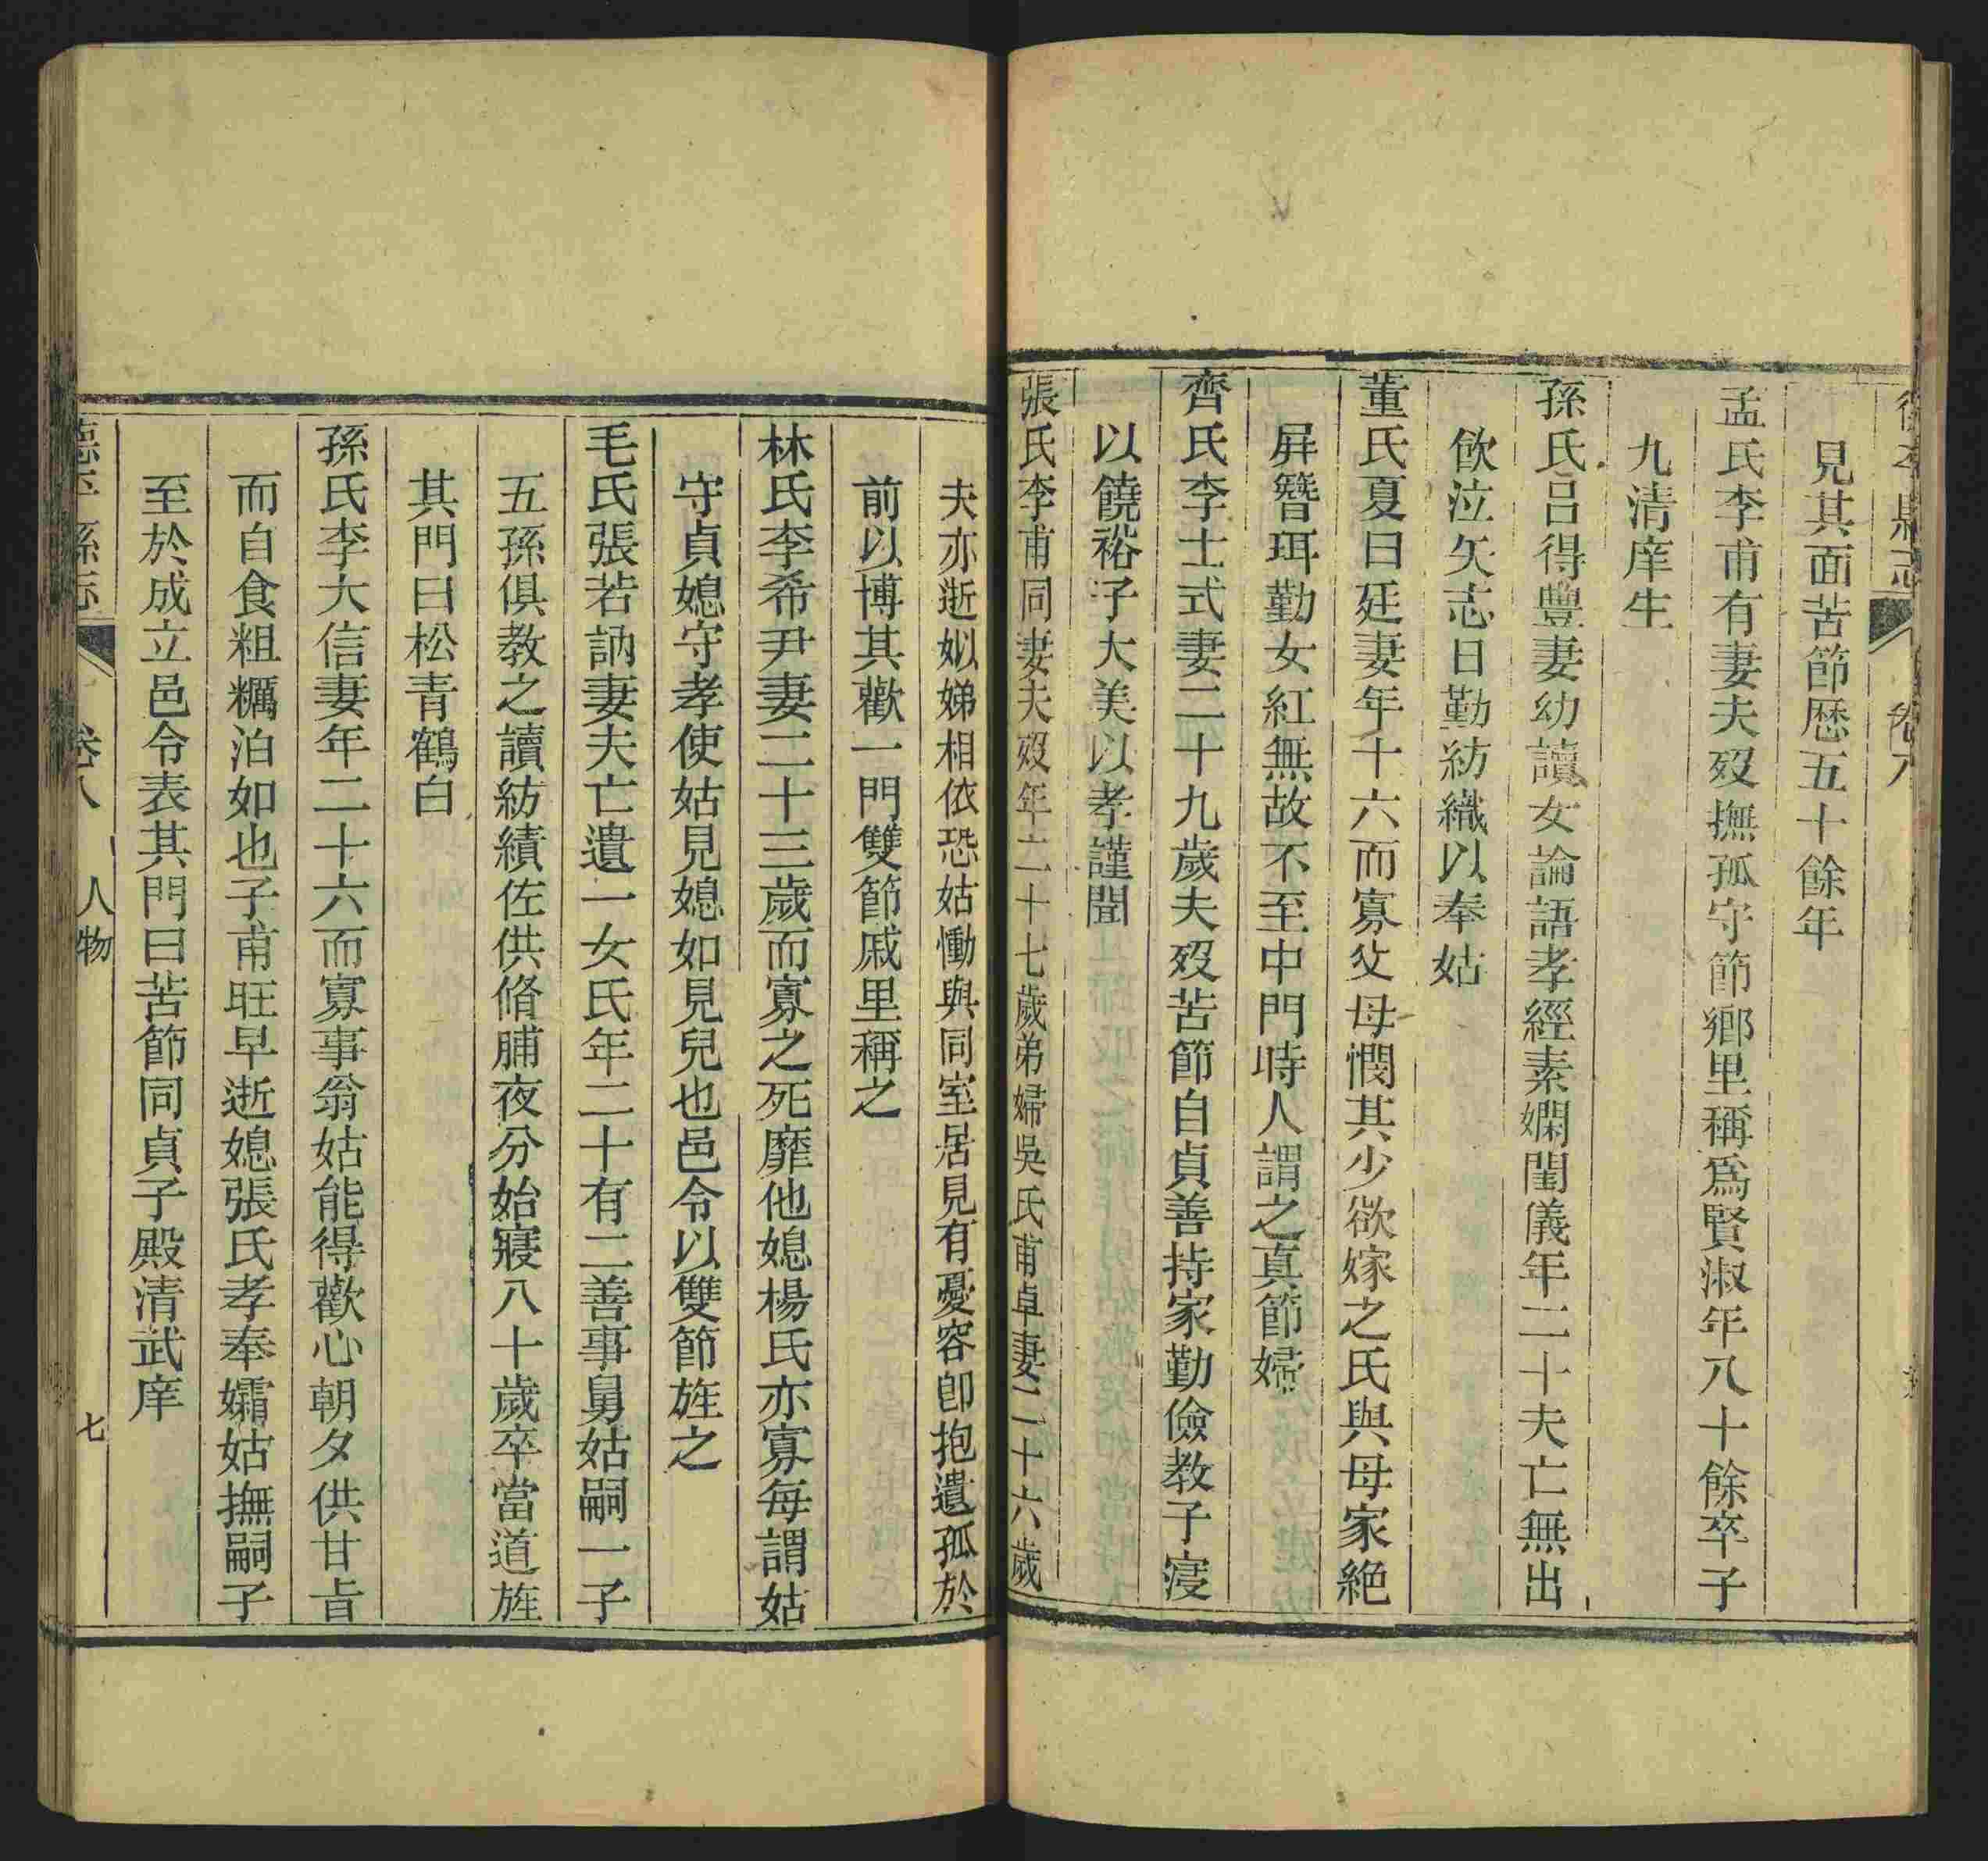 見其面苦節歷五十餘年
孟氏李甫有妻夫歿撫孤守節鄉里稱爲賢淑年八十餘卒子
九清庠生
孫氏呂得豐妻幼讀女論語孝經素嫻閨儀年二十夫亡無出
飲泣矢志日勤紡織以奉姑
董氏夏曰廷妻年十六而寡父母憫其少欲嫁之氏與母家絶
屛簪珥勤女紅無故不至中門時人謂之真節婦
齊氏李士式妻二十九歲夫歿苦節自貞善持家勤儉教子寖
以饒裕子大美以孝謹聞
張氏李甫同妻夫歿年二十七歲弟婦吳氏甫卓妻二十六歲
夫亦逝姒娣相依恐姑慟與同室居見有憂容卽抱遺孤於
前以博其歡一門雙節戚里稱之
林氏李希尹妻二十三歲而寡之死靡他媳楊氏亦寡每謂姑
守貞媳守孝使姑見媳如見兒也邑令以雙節旌之
毛氏張若訥妻夫亡遺一女氏年二十有二善事舅姑嗣一子
五孫俱教之讀紡績佐供脩脯夜分始寢八十歲卒當道旌
其門曰松青鶴白
孫氏李大信妻年二十六而寡事翁姑能得歡心朝夕供甘旨
而自食粗糲泊如也子甫旺早逝媳張氏孝奉孀姑撫嗣子
至於成立邑令表其門曰苦節同貞子殿清武庠
德平縣志 卷八 人物 七